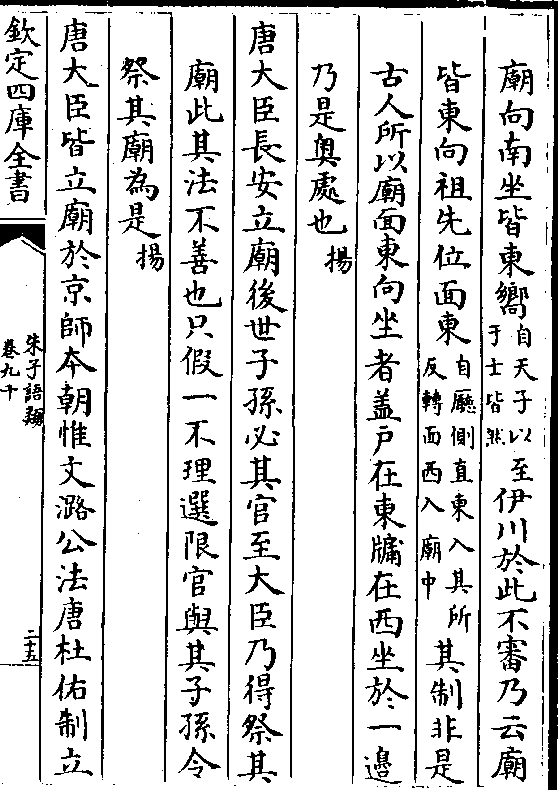 廟向南坐皆東嚮自天子以至于士皆然伊川於此不審乃云廟
皆東向祖先位面東自廳側直東入其所反轉面西入廟中其制非是
古人所以廟面東向坐者蓋戶在東牖在西坐於一邊
乃是奧處也揚
唐大臣長安立廟後世子孫必其官至大臣乃得祭其
廟此其法不善也只假一不理選限官與其子孫令
祭其廟為是揚
唐大臣皆立廟於京師夲朝惟文潞公法唐杜佑制立
欽定四庫全書
朱子語類
卷九十
二十五